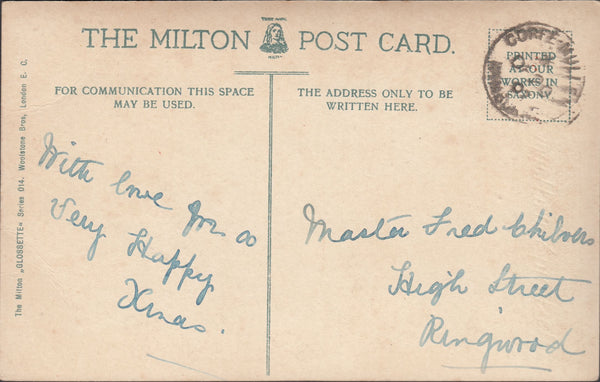 THE MILTON POST CARD.
FOR COMMUNICATION THIS SPACE
MAY BE USED.
THE ADDRESS ONLY TO BE
WRITTEN HERE.
PRINTED
AT OUR
WORKS IN
SAXONY
CORFE-MULLEN
The Milton „GLOSSETTE“ Series 014. Woolstone Bros, London E. C.
With love for a
Very Happy
Xmas.
Master Fred Chilvers
High Street
Ringwood